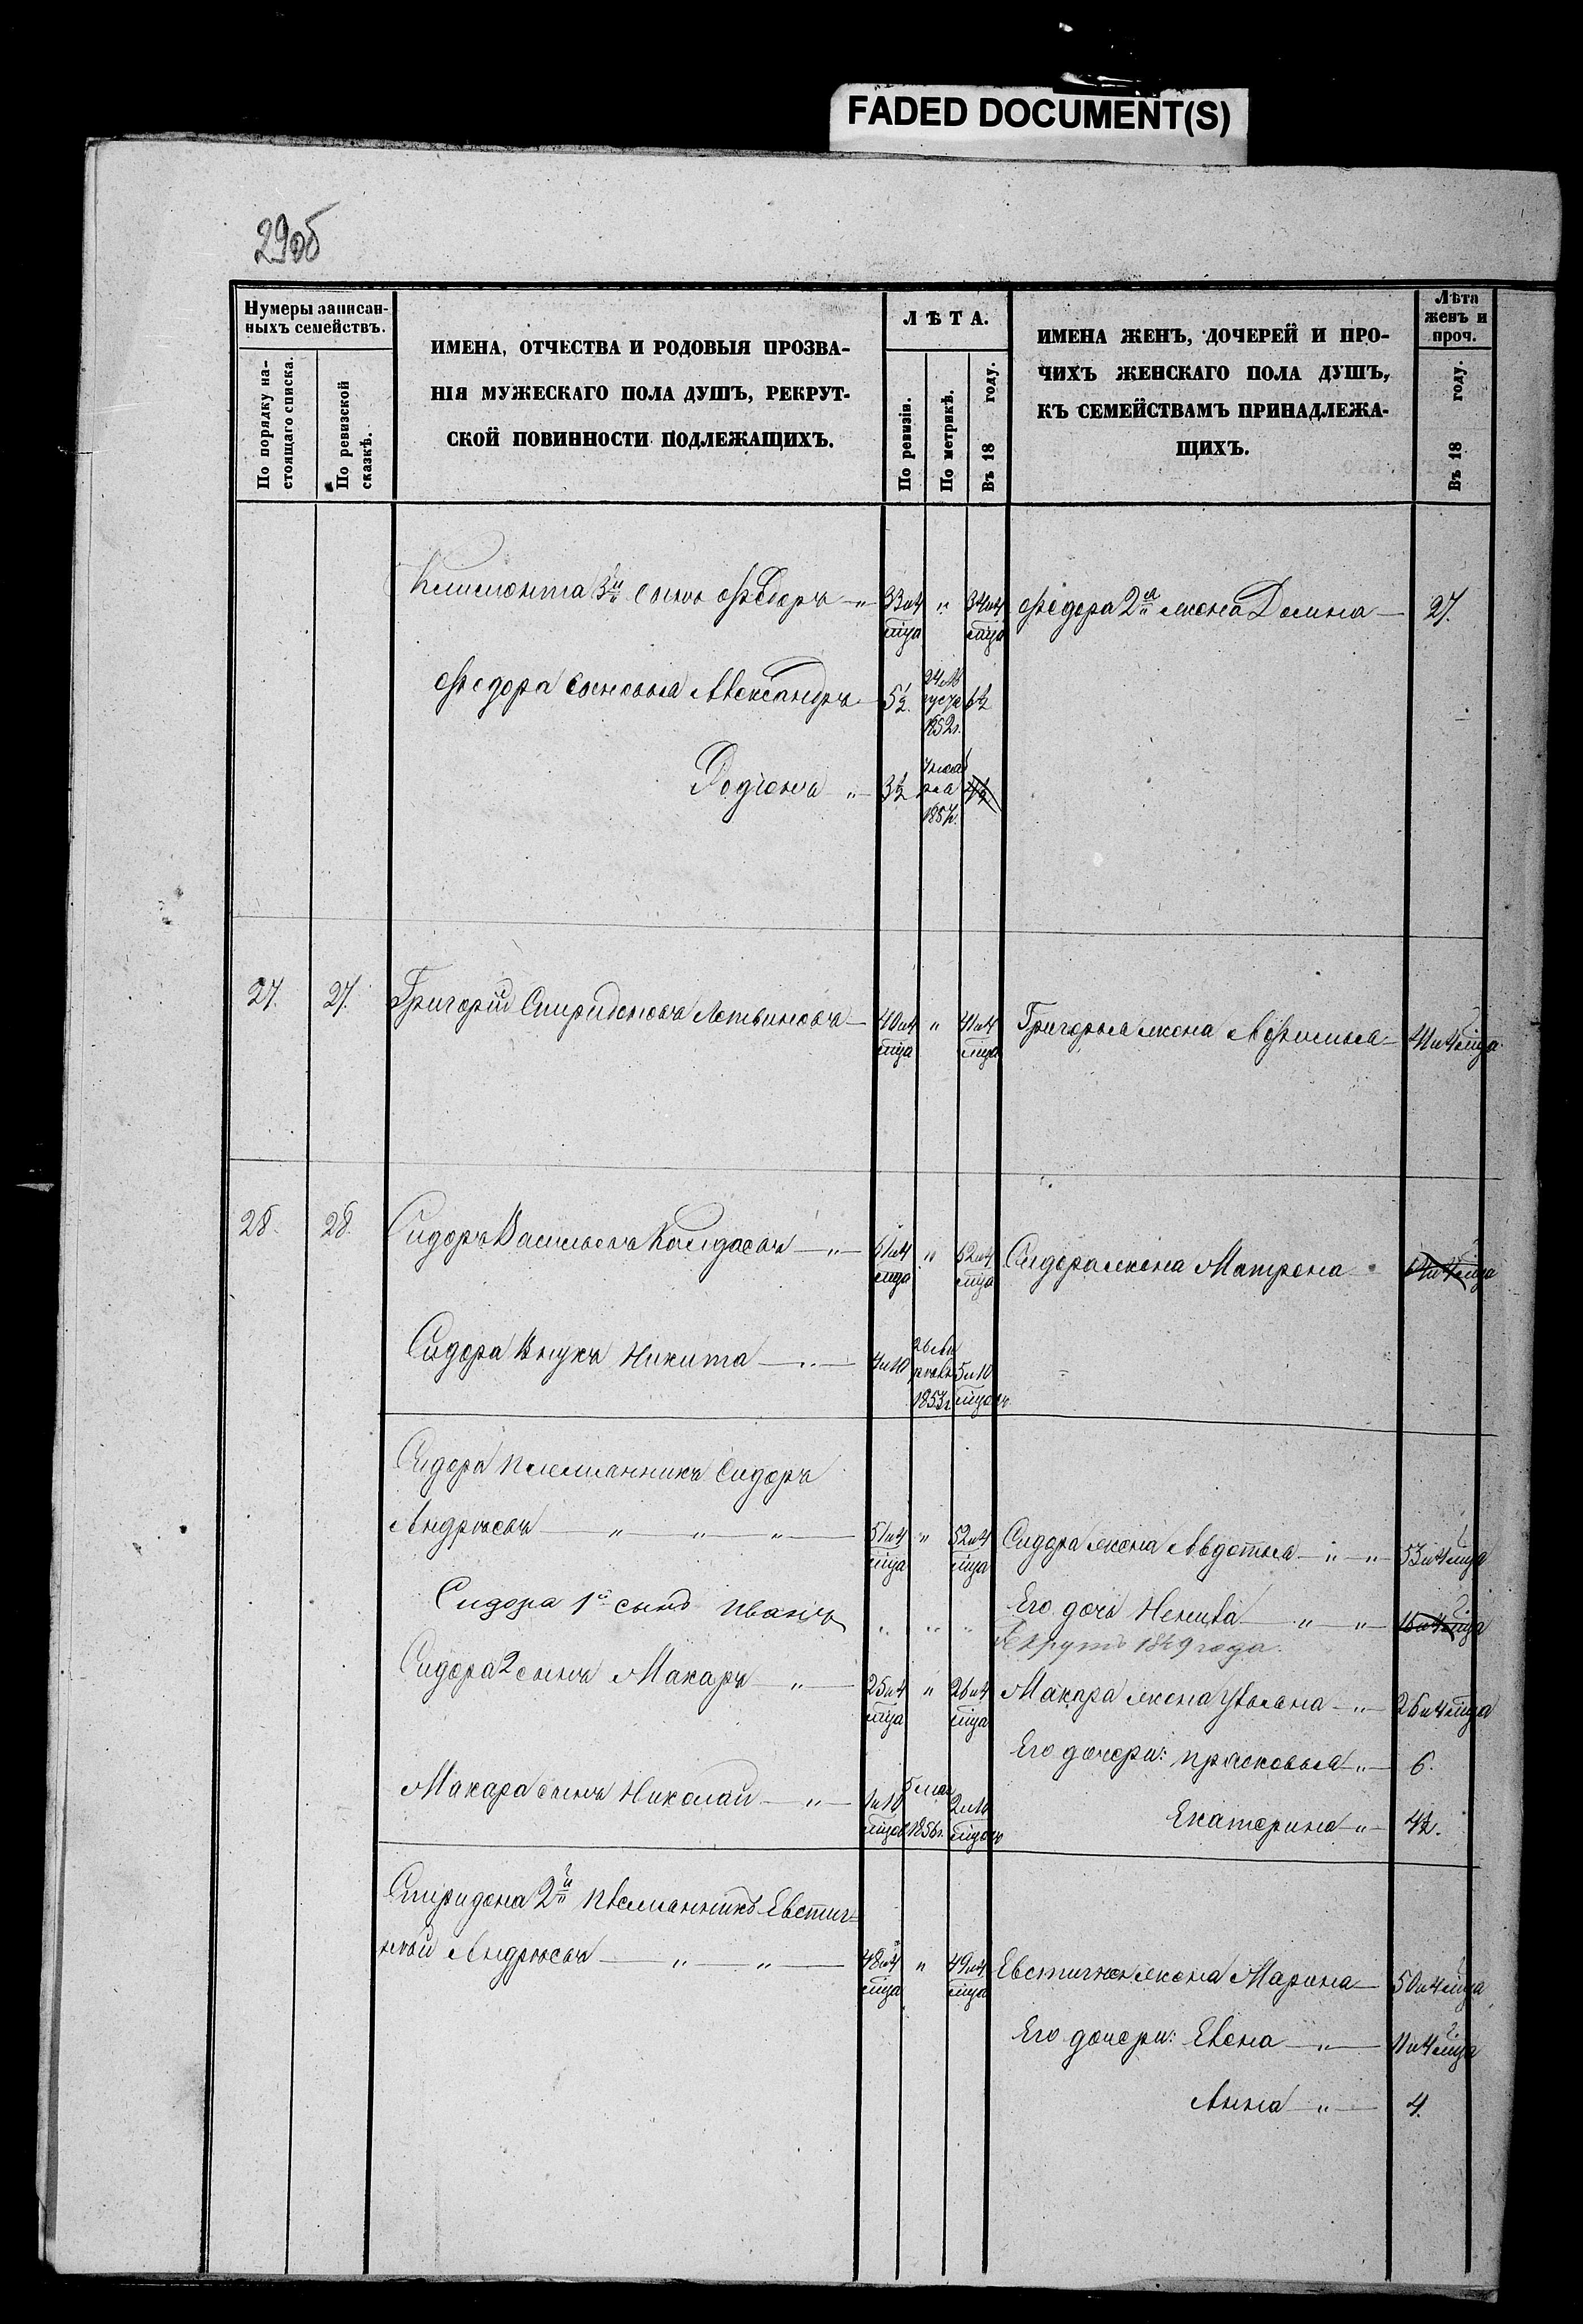 FADED DOCUMENT(S)
29об
Нумеры записан-
ныхъ семействъ.
По порядку на-
стоящаго списка.
По ревизской
сказкѣ.
ИМЕНА, ОТЧЕСТВА И РОДОВЫЯ ПРОЗВА-
НІЯ МУЖЕСКАГО ПОЛА ДУШЪ, РЕКРУТ-
СКОЙ ПОВИННОСТИ ПОДЛЕЖАЩИХЪ.
ЛѢТА.
По ревизіи.
По метрикѣ.
Въ 18 году.
ИМЕНА ЖЕНЪ, ДОЧЕРЕЙ И ПРО-
ЧИХЪ ЖЕНСКАГО ПОЛА ДУШЪ,
КЪ СЕМЕЙСТВАМЪ ПРИНАДЛЕЖА-
ЩИХЪ.
Лѣта
женъ и
проч.
Въ 18 году.
3й сынъ Федоръ 33 и 4 мца " 34 и 4 мца Федора 2я жена Домна 27.
Федора сыновья Александръ 5½ 24 Ав
густа
1852г. 6½
Родіонъ " 3½
27. 27. Григорій Спиридоновъ Литвиновъ 40 и 4 мца " 41 и 4 мца Григорья жена Афимья 41 и 4 мца
28. 28. Сидоръ Васильевъ 51 и 4 мца " 52 и 4 мца Сидора жена Матрена
Сидора внукъ Никита 4 и 10 1853г. 5 и 10 мцовъ
Сидора племянникъ Сидоръ
Андреевъ " " " 51 и 4 мца " 52 и 4 мца Сидора жена Авдотья " " 53 и 4 мца
Сидора 1й сынъ Иванъ " " " Его дочь Ненила " "
Рекрутъ 1849 года.
Сидора 2 сынъ Макаръ " 25 и 4 мца " 26 и 4 мца Макара жена Ульяна " 26 и 4 мца
Его дочери: Прасковья " 6.
Макара сынъ Николай " 1 и 10 мцов 5 мая
1856г. 2 и 10 мцовъ
Екатерина " 4½.
Спиридона 2й племянникъ Евстиг-
ней Андреевъ " " 48 и 4 мца " 49 и 4 мца Евстигнея жена Марина 50 и 4 мца
Его дочери: Елена " 11 и 4 мца
Анна " 4.